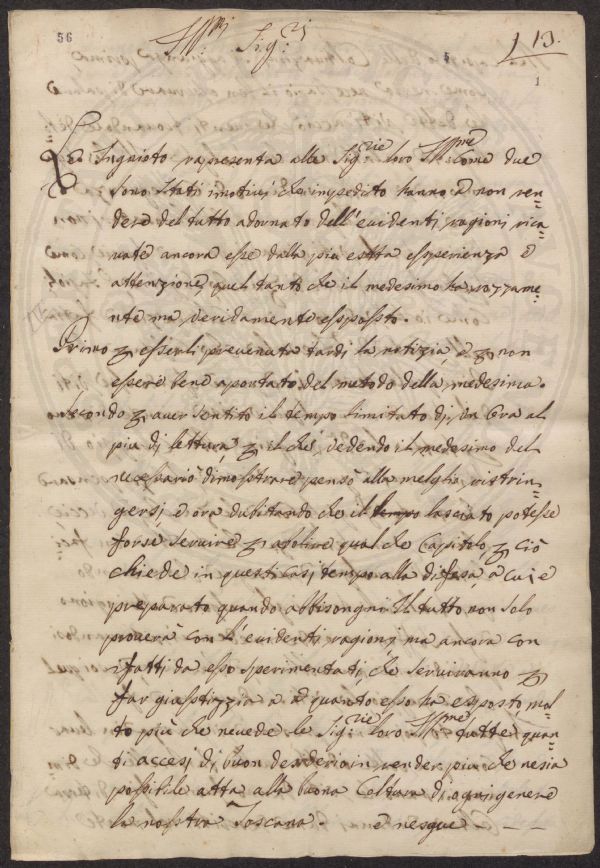 56
Ill:mi Sig:ri
13.
Leo Inquieto rapresenta alle Sig:rie loro Ill:me Come due
sono stati i motivi che impedito hanno à non ren=
dere del tutto adornato dell'evidenti ragioni rica=
vate ancora esse dalla più esatta essperienza è
attenzione, quel tanto che il medesimo ha rozzame=
nte ma veridamente essposto.
Primo p esserli prevenuta tardi la notizia, è p non
essere bene aportato del metodo della medesima.
Secondo p aver sentito il tempo limitato di un Ora al
più di lettura p il che vedendo il medesimo del
necessario dimosstrare pensò alla meglio risstrin=
gersi, e ora dubitando che il tempo lasciato potesse
forse servire p abolire qual che Capitolo, p ciò
chiede in questi casi tempo alla difesa, à cui è
preparato quando abbisongni. Il tutto non solo
proverà con l'evidenti ragioni ma ancora con
i fatti da esso sperimentati, che serviranno p
far giusstizzia a à quanto esso ha esposto mol=
to più che nevede le Sig:rie loro Ill:me tutte quan=
ti accesi di buon desiderio in render più che nesia
possibile atta alla buona Coltura di ogni genere
la nosstra Toscana. e nesque